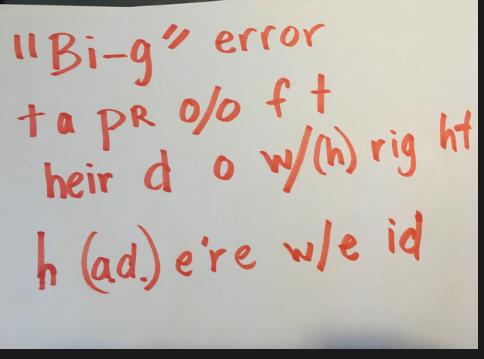 "Bi-g" error
ta pR o/o f t
heir d o w/(h) rig ht
h (ad.) e're w/e id